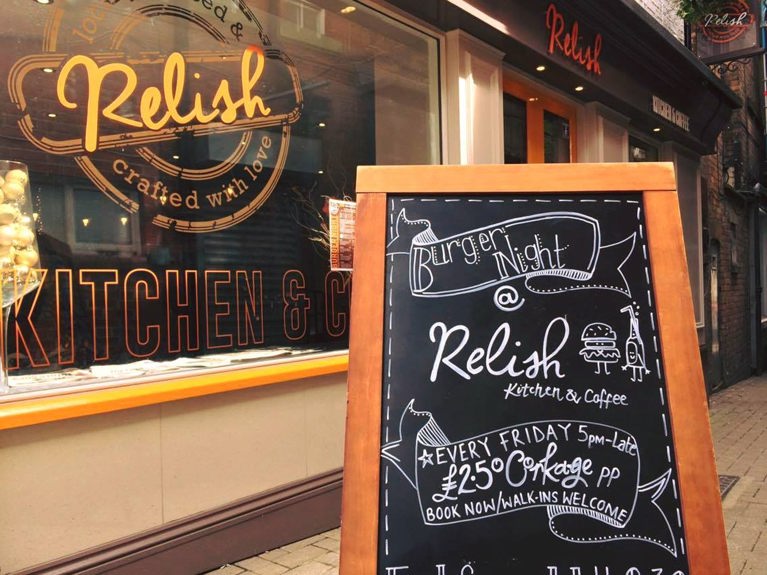 Relish
crafted with love
KITCHEN & C
Relish
KITCHEN & COFFEE
Relish
Burger Night
@
Relish
Kitchen & Coffee
EVERY FRIDAY 5pm-Late
£2.50 Corkage pp
BOOK NOW/WALK-INS WELCOME